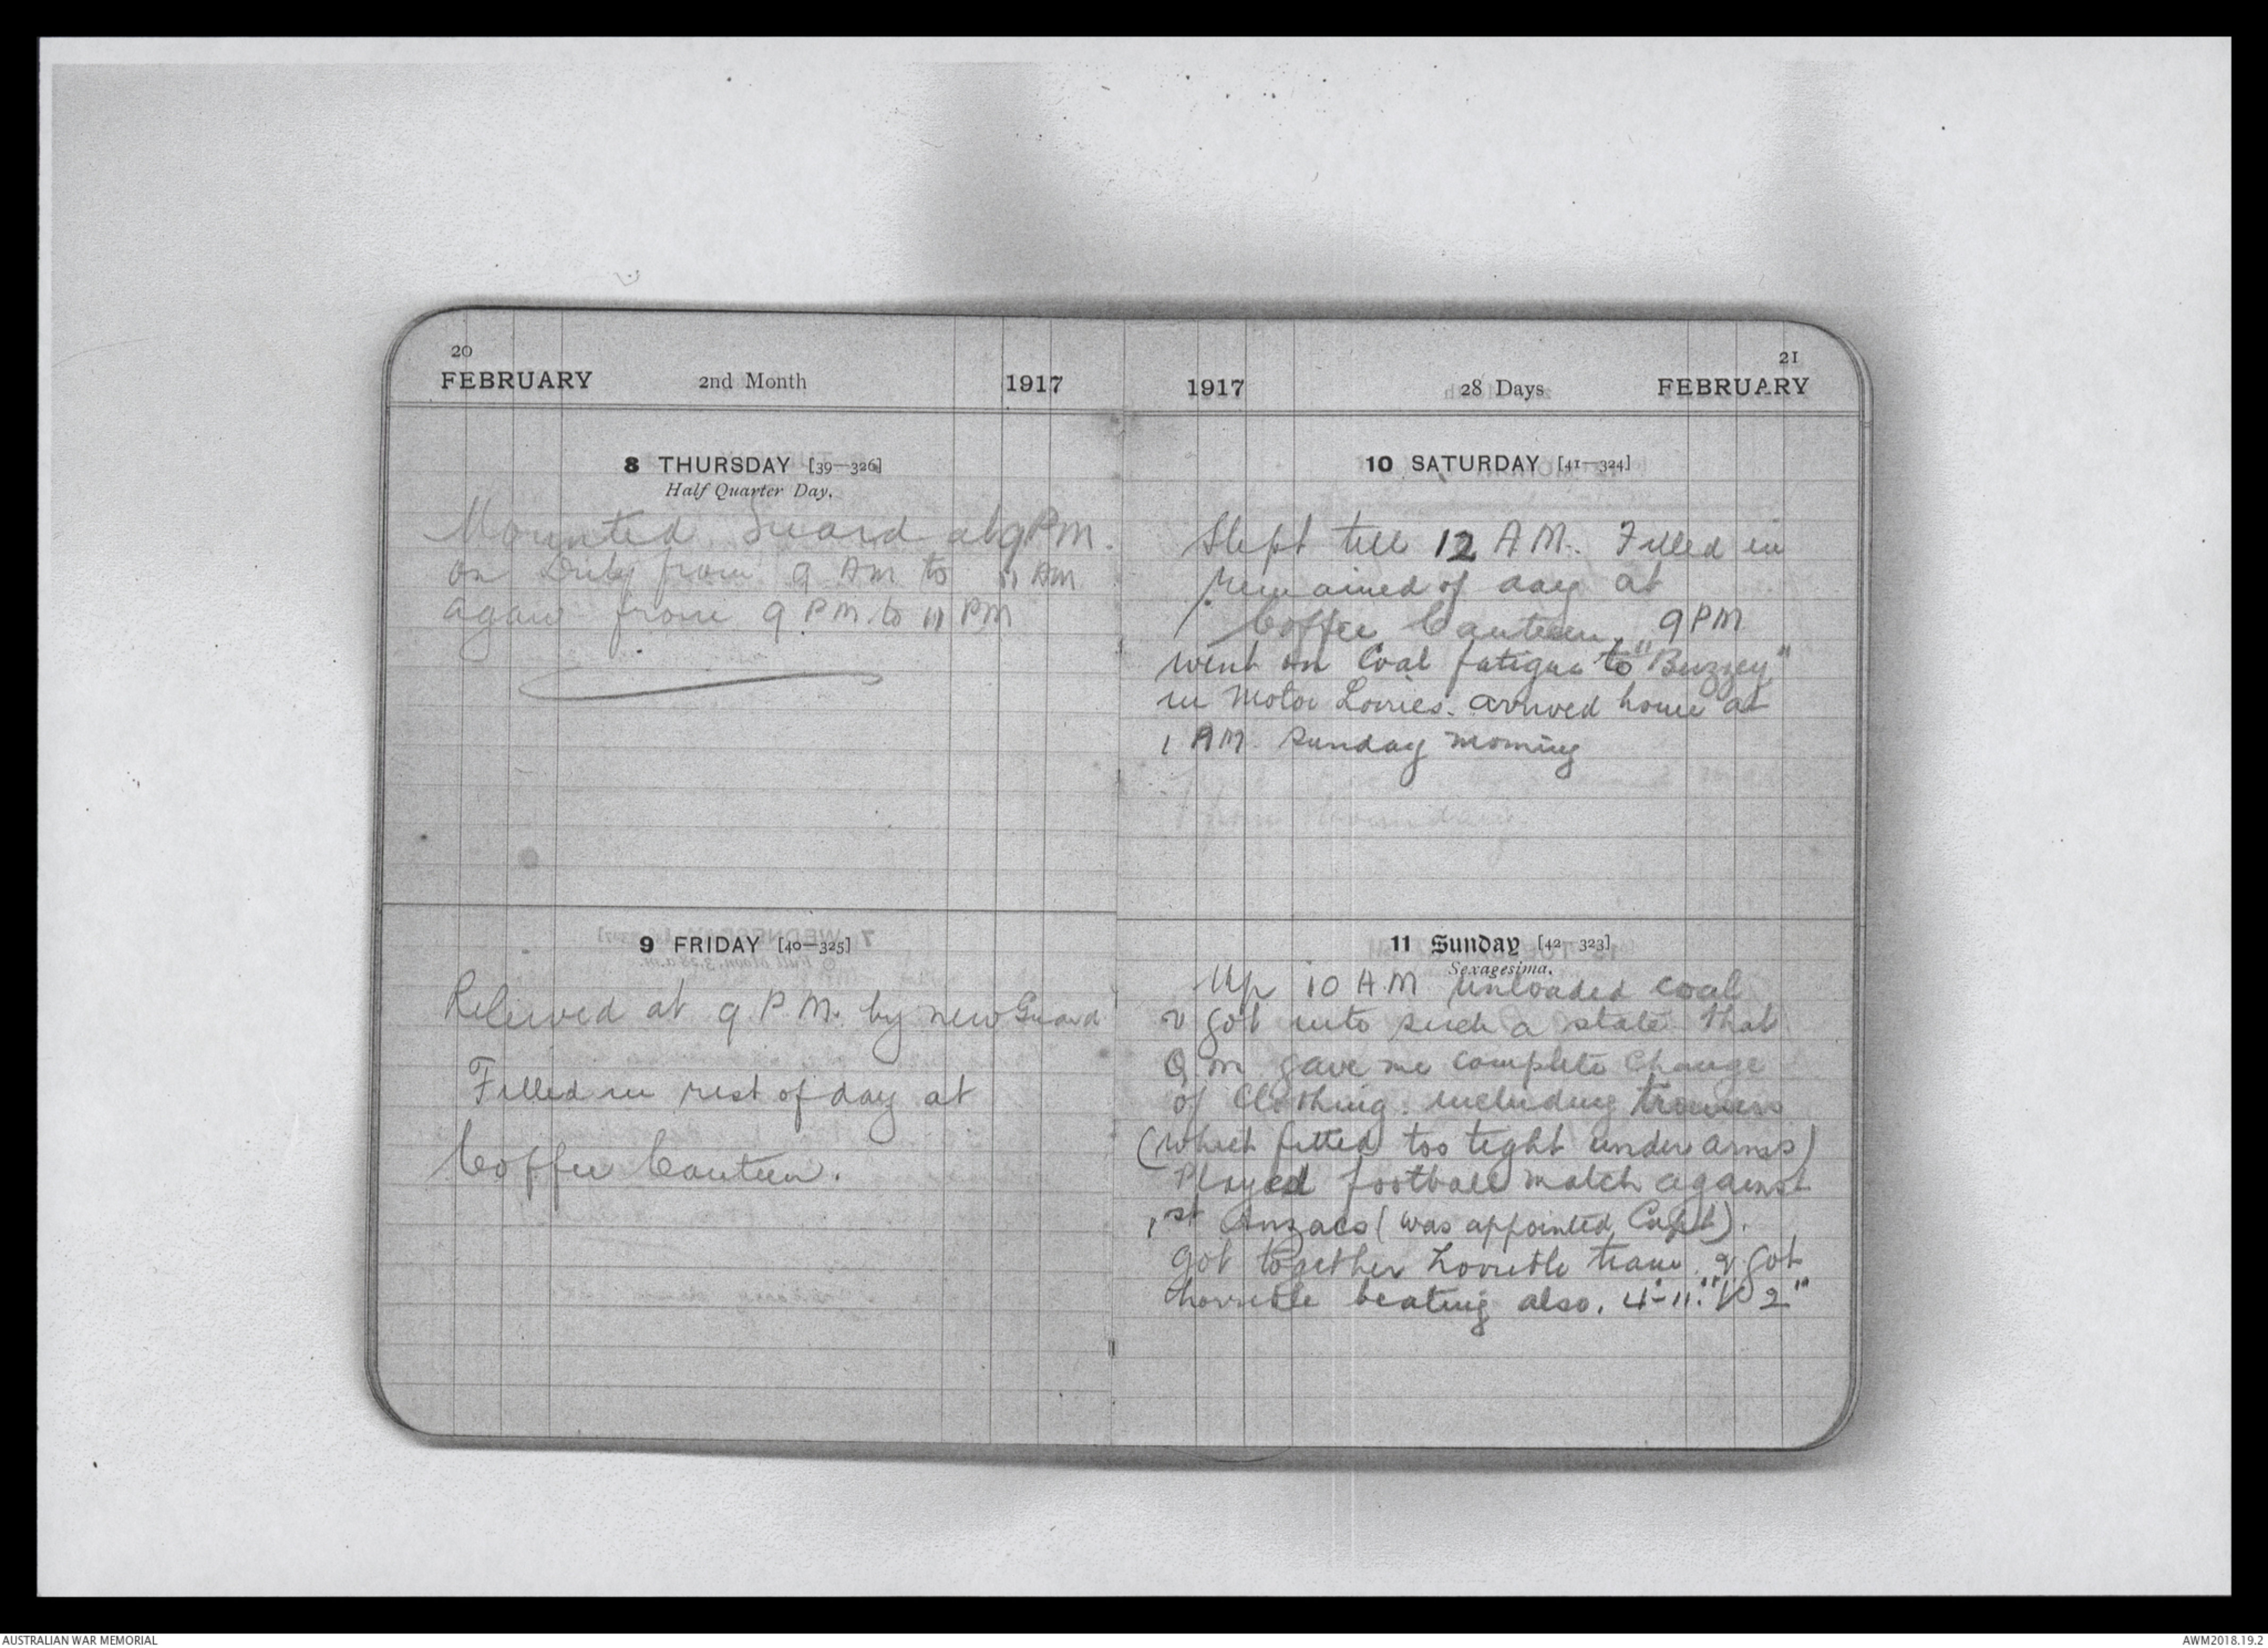 20
FEBRUARY 2nd Month 1917
8 THURSDAY [39—326]
Half Quarter Day.
Mounted Guard at 9 P.M.
on Duty from 9 AM to 11 AM
again from 9 PM to 11 PM
9 FRIDAY [40—325]
Releived at 9 P.M. by new Guard
Filled in rest of day at
Coffee Canteen.
21
1917 28 Days FEBRUARY
10 SATURDAY [41—324]
Slept till 12 A.M. Filled in
remained of day at
Coffee Canteen. 9 PM
went on Coal fatigue to "Buzzey"
in Motor Lorries. arrived home at
1 AM. Sunday morning
11 Sunday [42—323]
Sexagesima.
Up 10 A.M. unloaded coal
& got into such a state that
Q M gave me complete change
of Clothing. including trousers
(which fitted too tight under arms)
Played football match against
1st Anzacs (was appointed Capt).
got together horrible team. & got
horrible beating also. 4-11. "V 2"
AUSTRALIAN WAR MEMORIAL
AWM2018.19.2